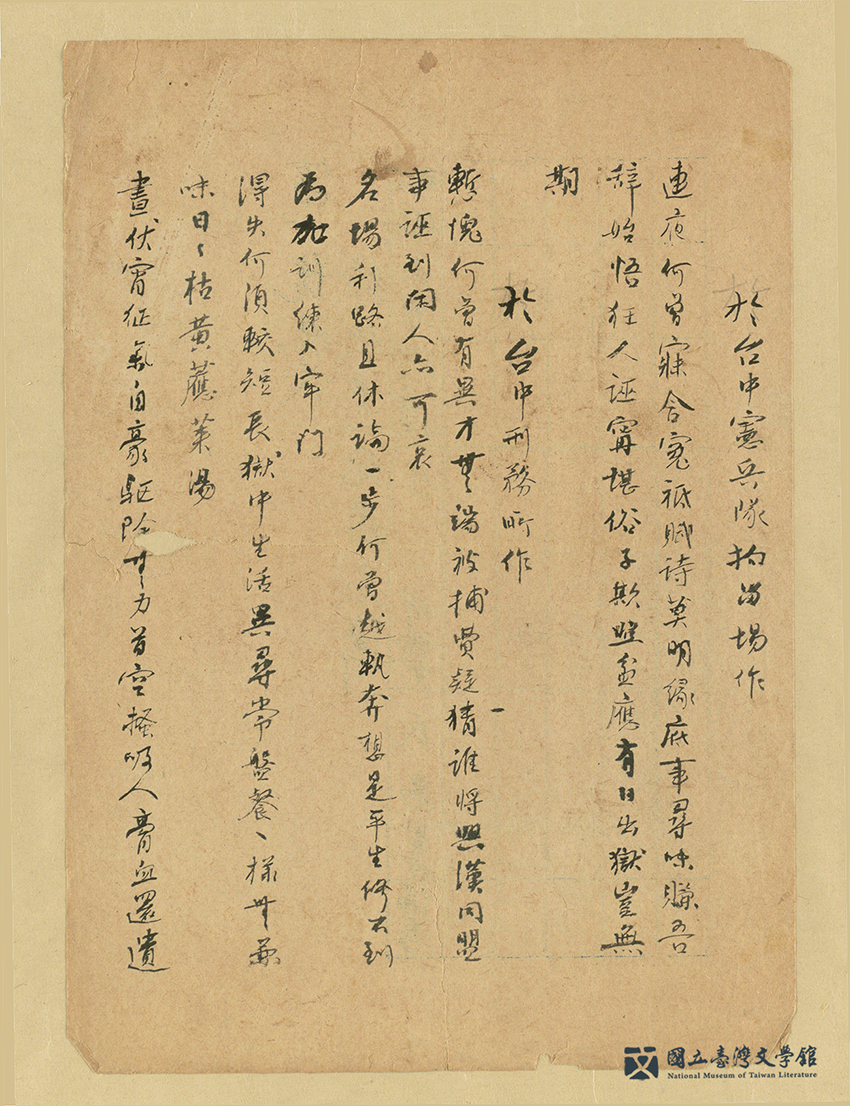 於台中憲兵隊拘留場作
連夜何曾寐含寃祗賦詩莫明緣底事尋味賺吾
辞始悟狂人誣甯堪俗子欺盬盆應有日出獄豈無
期
於台中刑務所作
慙愧何曾有異才無端被捕費疑猜誰將興漢同盟
事誣到閑人亦可哀
名場利路且休論一步何曾越軌奔想是平生修不到
為加訓練入牢門
得失何須較短長獄中生活異尋常盤餐〻樣無兼
味日〻枯黃蘿菜湯
晝伏宵征氣自豪驅除無力首空搔吸人膏血還遺
國立臺灣文學館
National Museum of Taiwan Literature